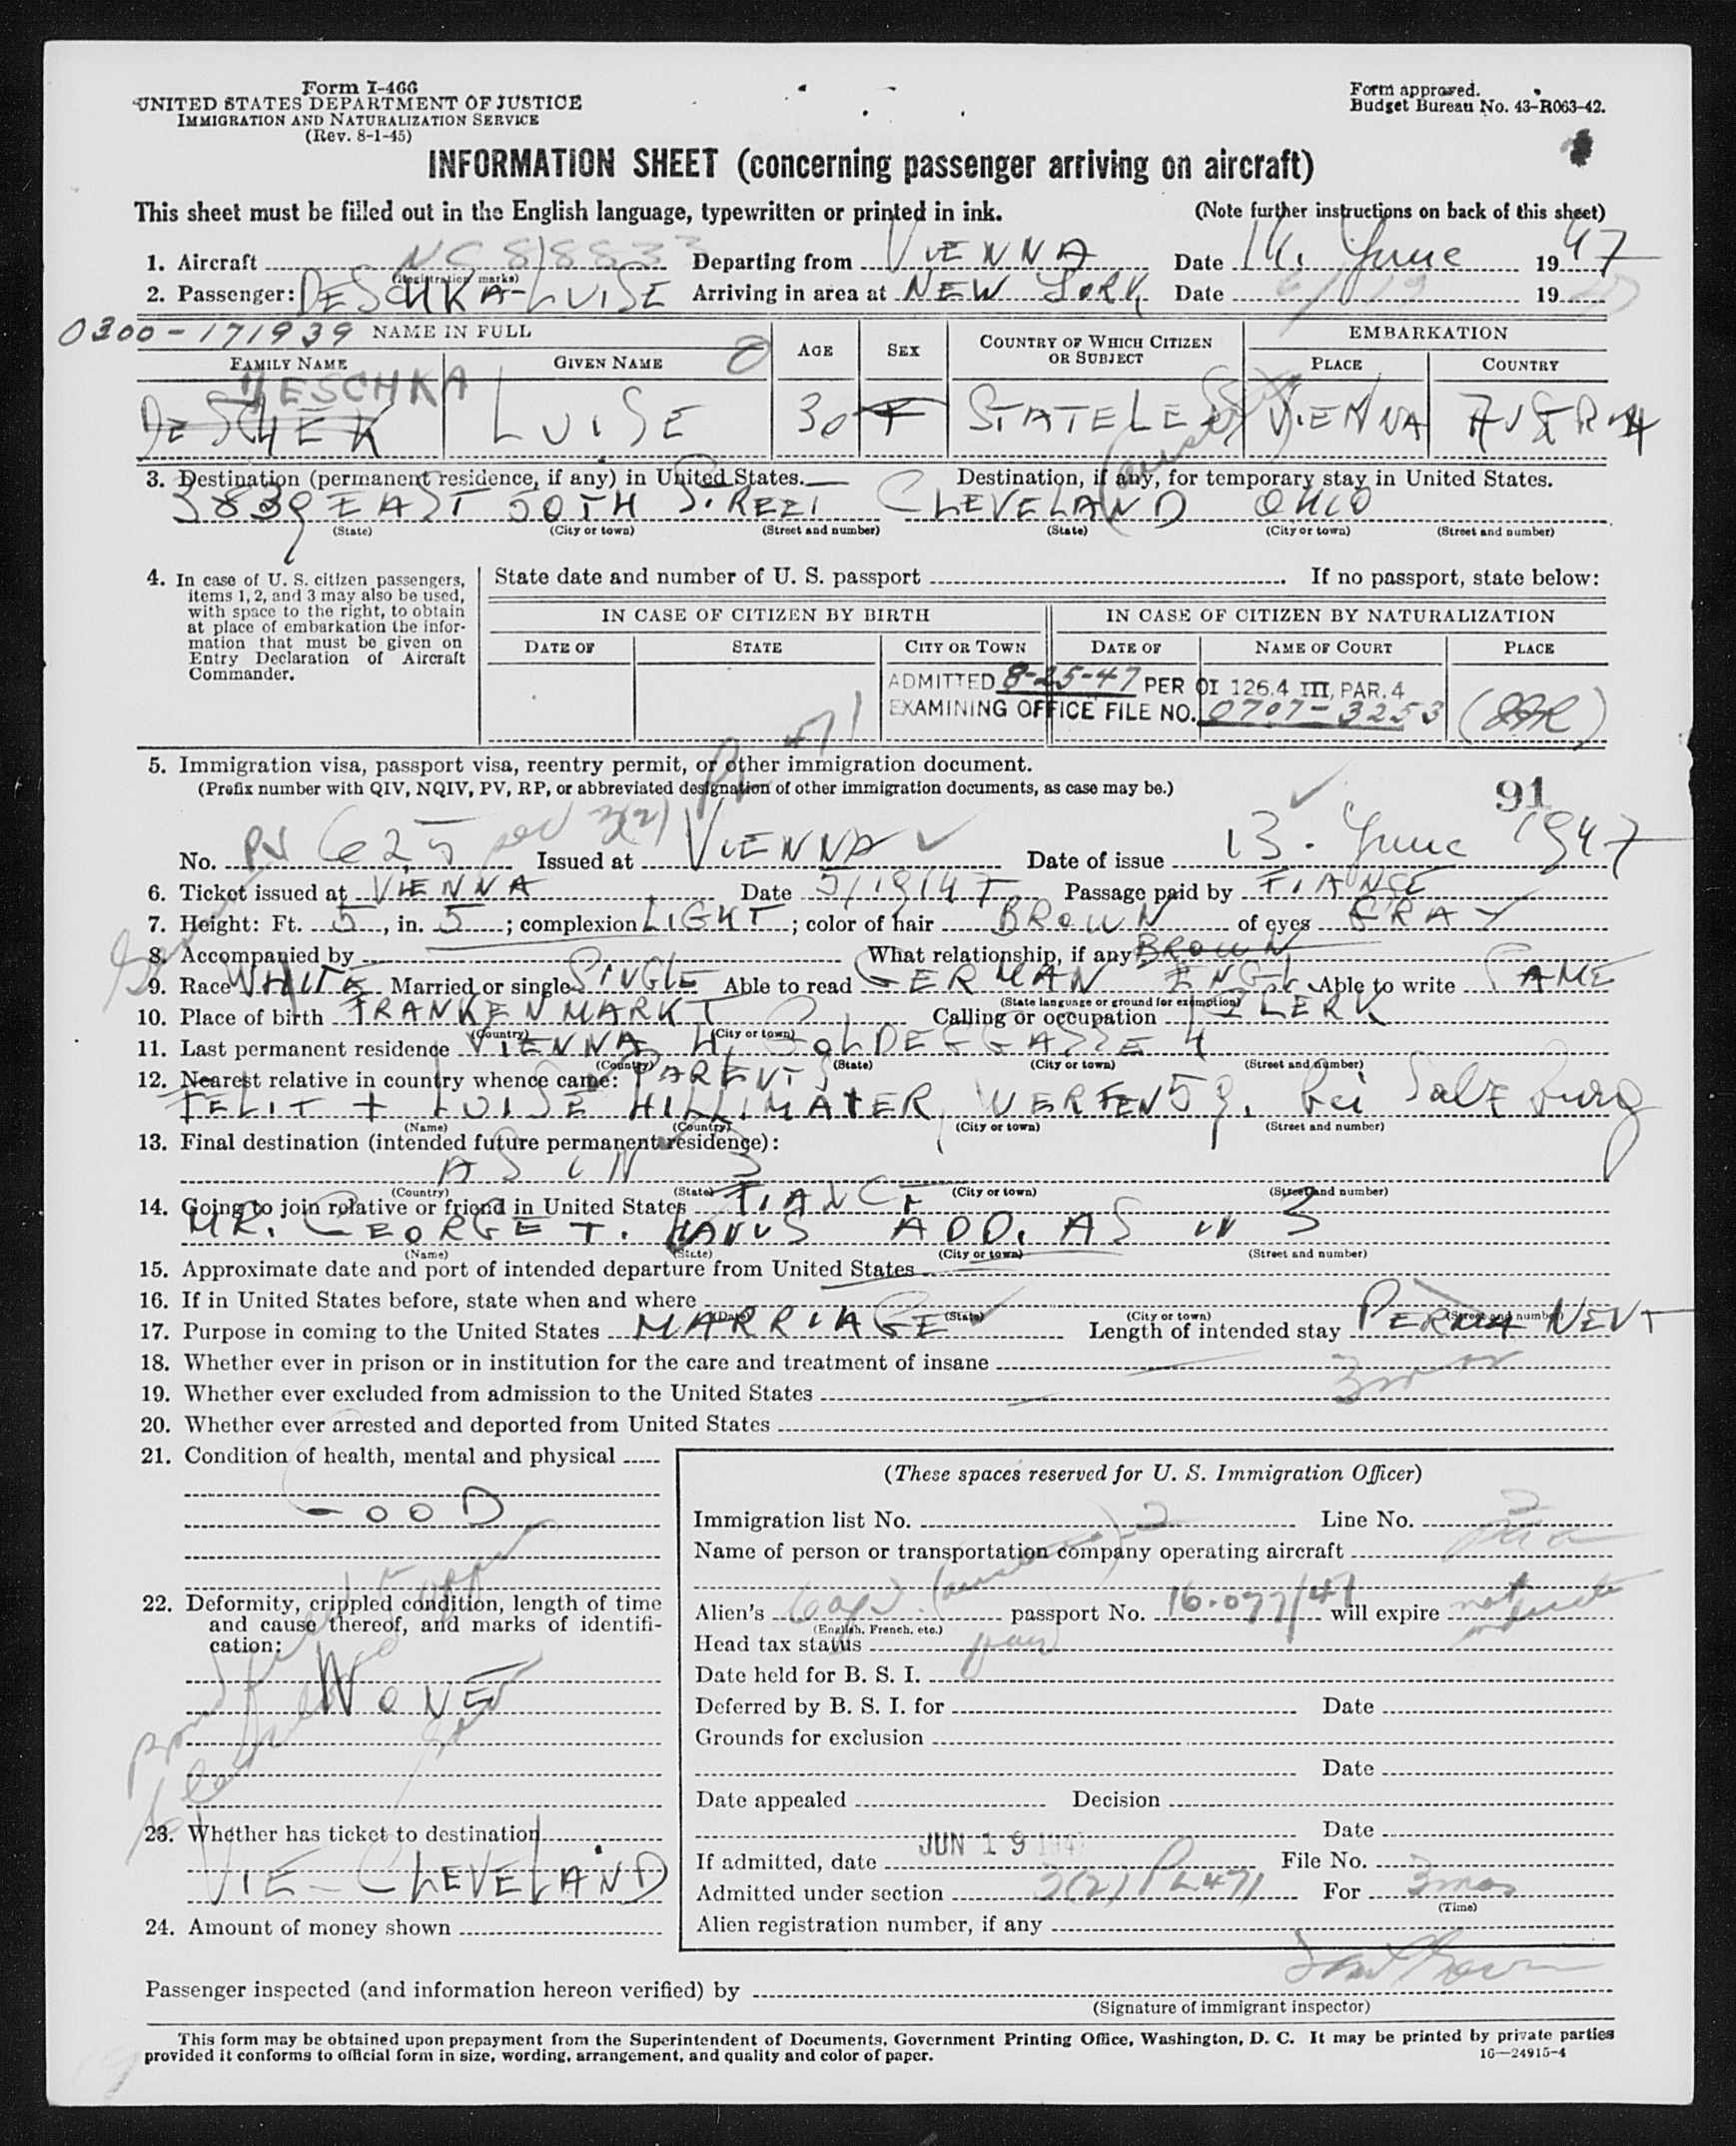 Form I-466
UNITED STATES DEPARTMENT OF JUSTICE
IMMIGRATION AND NATURALIZATION SERVICE
(Rev. 8-1-45)
Form approved.
Budget Bureau No. 43-R063-42.
INFORMATION SHEET (concerning passenger arriving on aircraft)
This sheet must be filled out in the English language, typewritten or printed in ink. (Note further instructions on back of this sheet)
1. Aircraft NC 88883 Departing from VIENNA Date 14. June 1947
(Registration marks)
2. Passenger: DESCHKA-LUISE Arriving in area at NEW YORK Date 6/19 19
0300-171939 NAME IN FULL AGE SEX COUNTRY OF WHICH CITIZEN OR SUBJECT EMBARKATION
FAMILY NAME GIVEN NAME PLACE COUNTRY
DESCHKA
DESCHEK LUISE 30 F STATELESS VIENNA AUSTRIA
3. Destination (permanent residence, if any) in United States. Destination, if any, for temporary stay in United States.
3839 EAST 50TH STREET CLEVELAND OHIO
(State) (City or town) (Street and number) (State) (City or town) (Street and number)
4. In case of U. S. citizen passengers, items 1, 2, and 3 may also be used, with space to the right, to obtain at place of embarkation the information that must be given on Entry Declaration of Aircraft Commander.
State date and number of U. S. passport If no passport, state below:
IN CASE OF CITIZEN BY BIRTH IN CASE OF CITIZEN BY NATURALIZATION
DATE OF STATE CITY OR TOWN DATE OF NAME OF COURT PLACE
ADMITTED 8-25-47 PER OI 126.4 III, PAR. 4
EXAMINING OFFICE FILE NO. 0707-3253
5. Immigration visa, passport visa, reentry permit, or other immigration document.
(Prefix number with QIV, NQIV, PV, RP, or abbreviated designation of other immigration documents, as case may be.)
91
No. PV 625 sec 3(2) PL 471 Issued at VIENNA Date of issue 13. June 1947
6. Ticket issued at VIENNA Date 5/19/47 Passage paid by FIANCE
7. Height: Ft. 5, in. 5; complexion LIGHT; color of hair BROWN of eyes GRAY
8. Accompanied by What relationship, if any BROWN
9. Race WHITE Married or single SINGLE Able to read GERMAN ENGL Able to write SAME
(State language or ground for exemption)
10. Place of birth FRANKENMARKT Calling or occupation CLERK
(Country) (City or town)
11. Last permanent residence VIENNA 4, GOLDEGGASSE 4
(Country) (State) (City or town) (Street and number)
12. Nearest relative in country whence came: PARENTS
FELIX + LUISE HILLIMAIER, WERFEN 59. bei Salzburg
(Name) (Country) (City or town) (Street and number)
13. Final destination (intended future permanent residence):
AS IN 3
(Country) (State) (City or town) (Street and number)
14. Going to join relative or friend in United States FIANCE
MR. GEORGE T. HANUS ADD. AS IN 3
(Name) (State) (City or town) (Street and number)
15. Approximate date and port of intended departure from United States
16. If in United States before, state when and where
(Date) (State) (City or town) (Street and number)
17. Purpose in coming to the United States MARRIAGE Length of intended stay PERMANENT
18. Whether ever in prison or in institution for the care and treatment of insane
19. Whether ever excluded from admission to the United States
20. Whether ever arrested and deported from United States
21. Condition of health, mental and physical
GOOD
22. Deformity, crippled condition, length of time and cause thereof, and marks of identification:
NONE
23. Whether has ticket to destination
VIE - CLEVELAND
24. Amount of money shown
(These spaces reserved for U. S. Immigration Officer)
Immigration list No. 2 Line No. 2
Name of person or transportation company operating aircraft
Alien's passport No. 16.077/47 will expire not
(English, French, etc.)
Head tax status
Date held for B. S. I.
Deferred by B. S. I. for Date
Grounds for exclusion
Date
Date appealed Decision
Date
If admitted, date JUN 19 1947 File No.
Admitted under section 3(2) PL 471 For 3 mos
(Time)
Alien registration number, if any
Passenger inspected (and information hereon verified) by
(Signature of immigrant inspector)
This form may be obtained upon prepayment from the Superintendent of Documents, Government Printing Office, Washington, D. C. It may be printed by private parties
provided it conforms to official form in size, wording, arrangement, and quality and color of paper. 16—24915-4